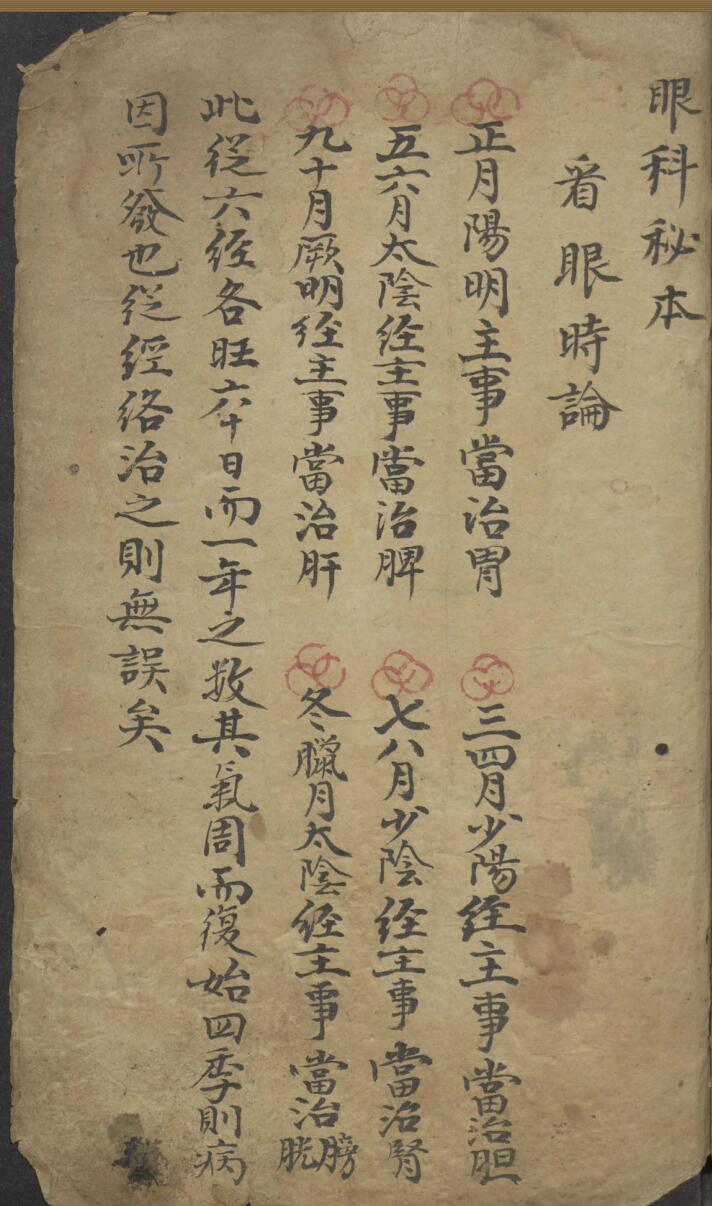 眼科秘本
看眼時論
正月陽明主事當治胃
三四月少陽經主事當治胆
五六月太陰經主事當治脾
七八月少陰經主事當治腎
九十月厥明經主事當治肝
冬臘月太陰經主事當治膀胱
此從六經各旺六十日而一年之数其氣周而復始四季則病
因所發也從經络治之則無誤矣